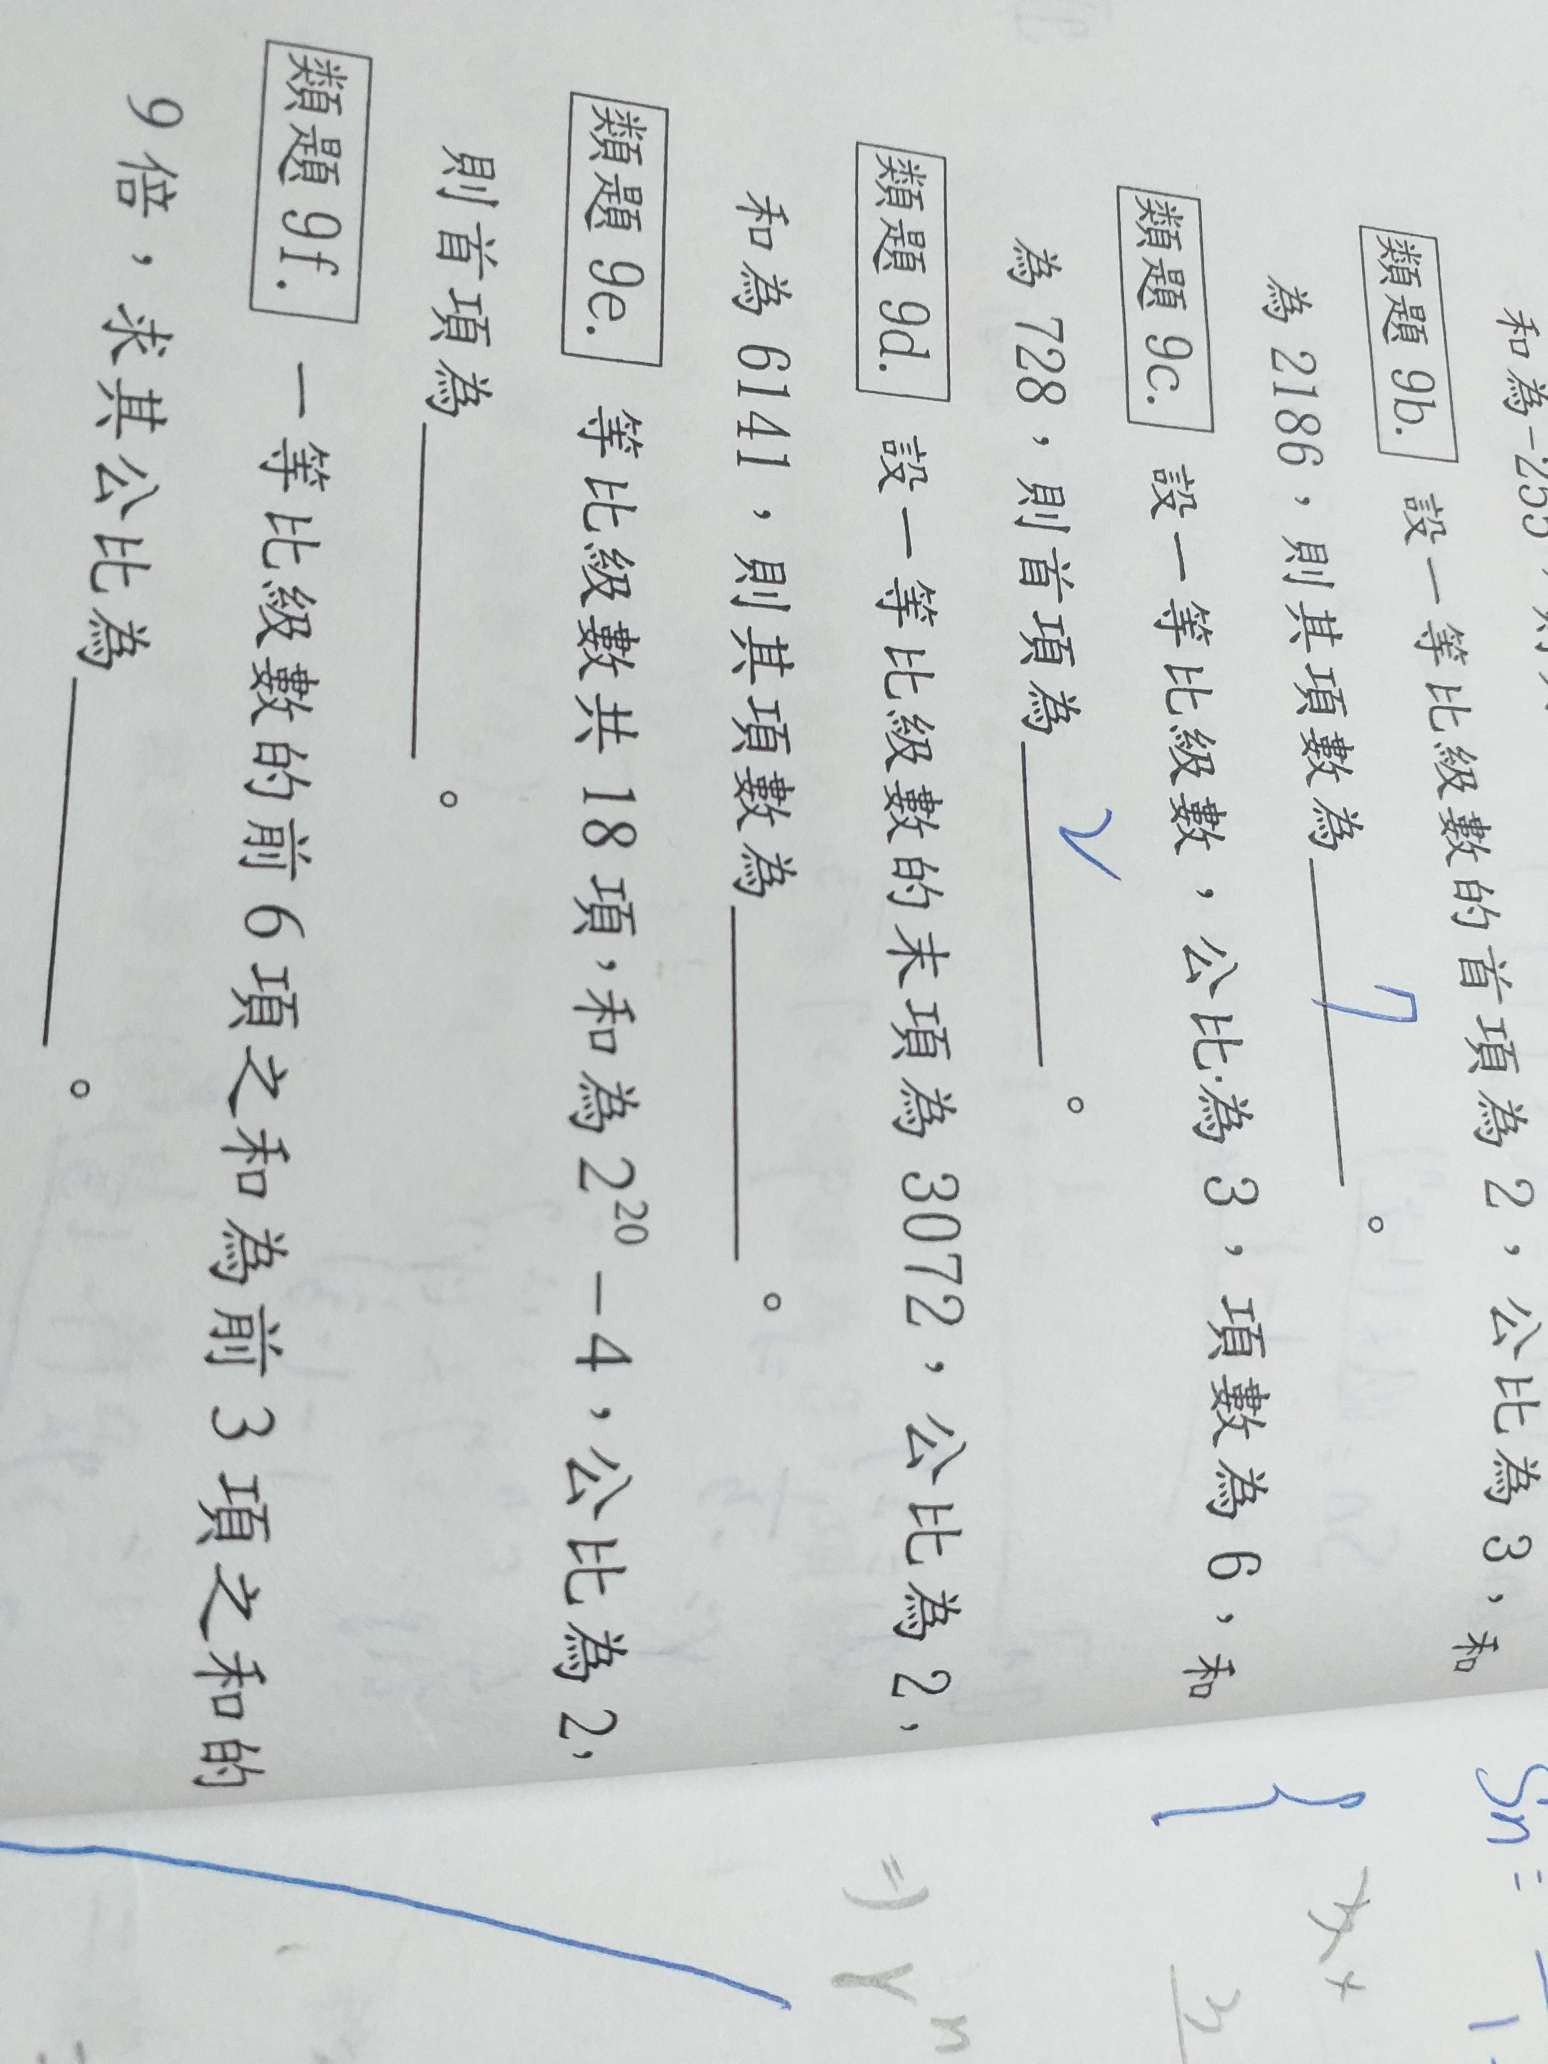 和為-255
類題 9b. 設一等比級數的首項為 2，公比為 3，和
為 2186，則其項數為 7 。
類題 9c. 設一等比級數，公比為 3，項數為 6，和
為 728，則首項為 2 。
類題 9d. 設一等比級數的末項為 3072，公比為 2，
和為 6141，則其項數為 。
類題 9e. 等比級數共 18 項，和為 2²⁰－4，公比為 2，
則首項為 。
類題 9f. 一等比級數的前 6 項之和為前 3 項之和的
9 倍，求其公比為 。
Sn =